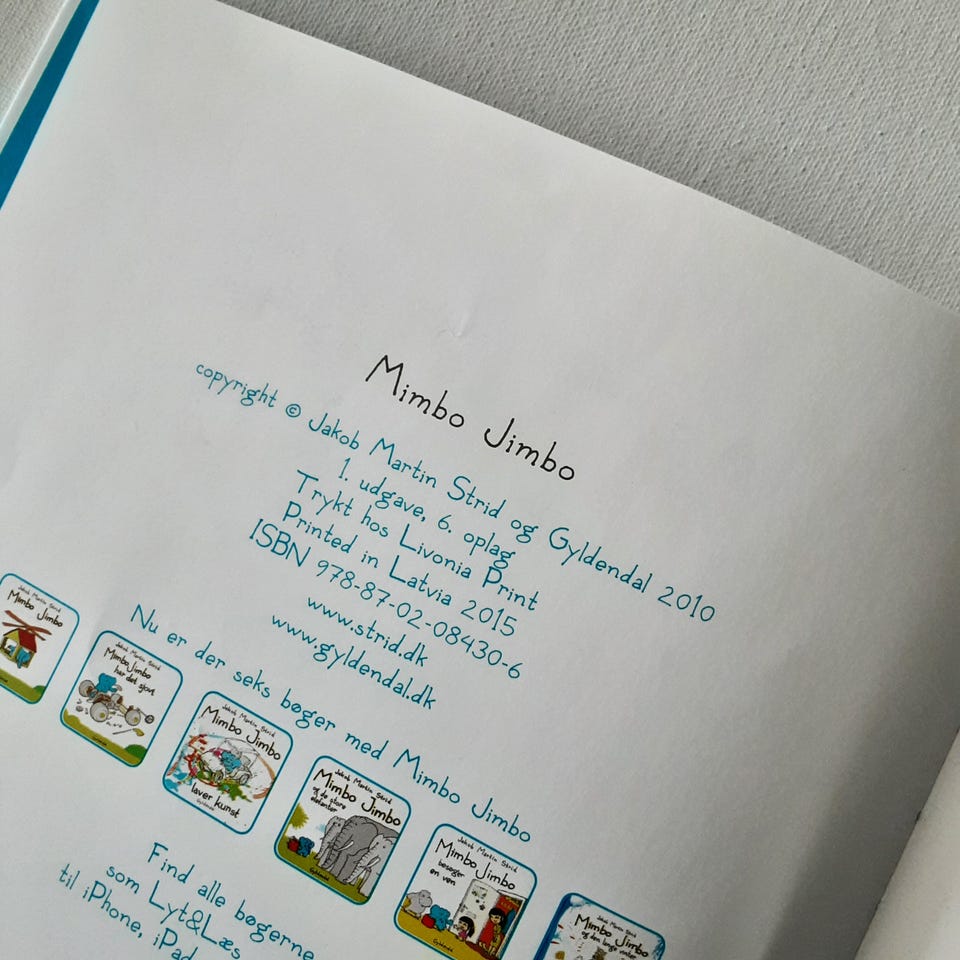 Mimbo Jimbo
copyright © Jakob Martin Strid og Gyldendal 2010
1. udgave, 6. oplag
Trykt hos Livonia Print
Printed in Latvia 2015
ISBN 978-87-02-08430-6
www.strid.dk
www.gyldendal.dk
Nu er der seks bøger med Mimbo Jimbo
Jakob Martin Strid
Mimbo Jimbo
Jakob Martin Strid
Mimbo Jimbo
har det sjovt
Gyldendal
Jakob Martin Strid
Mimbo Jimbo
laver kunst
Gyldendal
Jakob Martin Strid
Mimbo Jimbo
og de store
elefanter
Gyldendal
Jakob Martin Strid
Mimbo Jimbo
besøger
en ven
Gyldendal
Jakob Martin Strid
Mimbo Jimbo
og den lange vinter
Find alle bøgerne
som Lyt&Læs
til iPhone, iPad